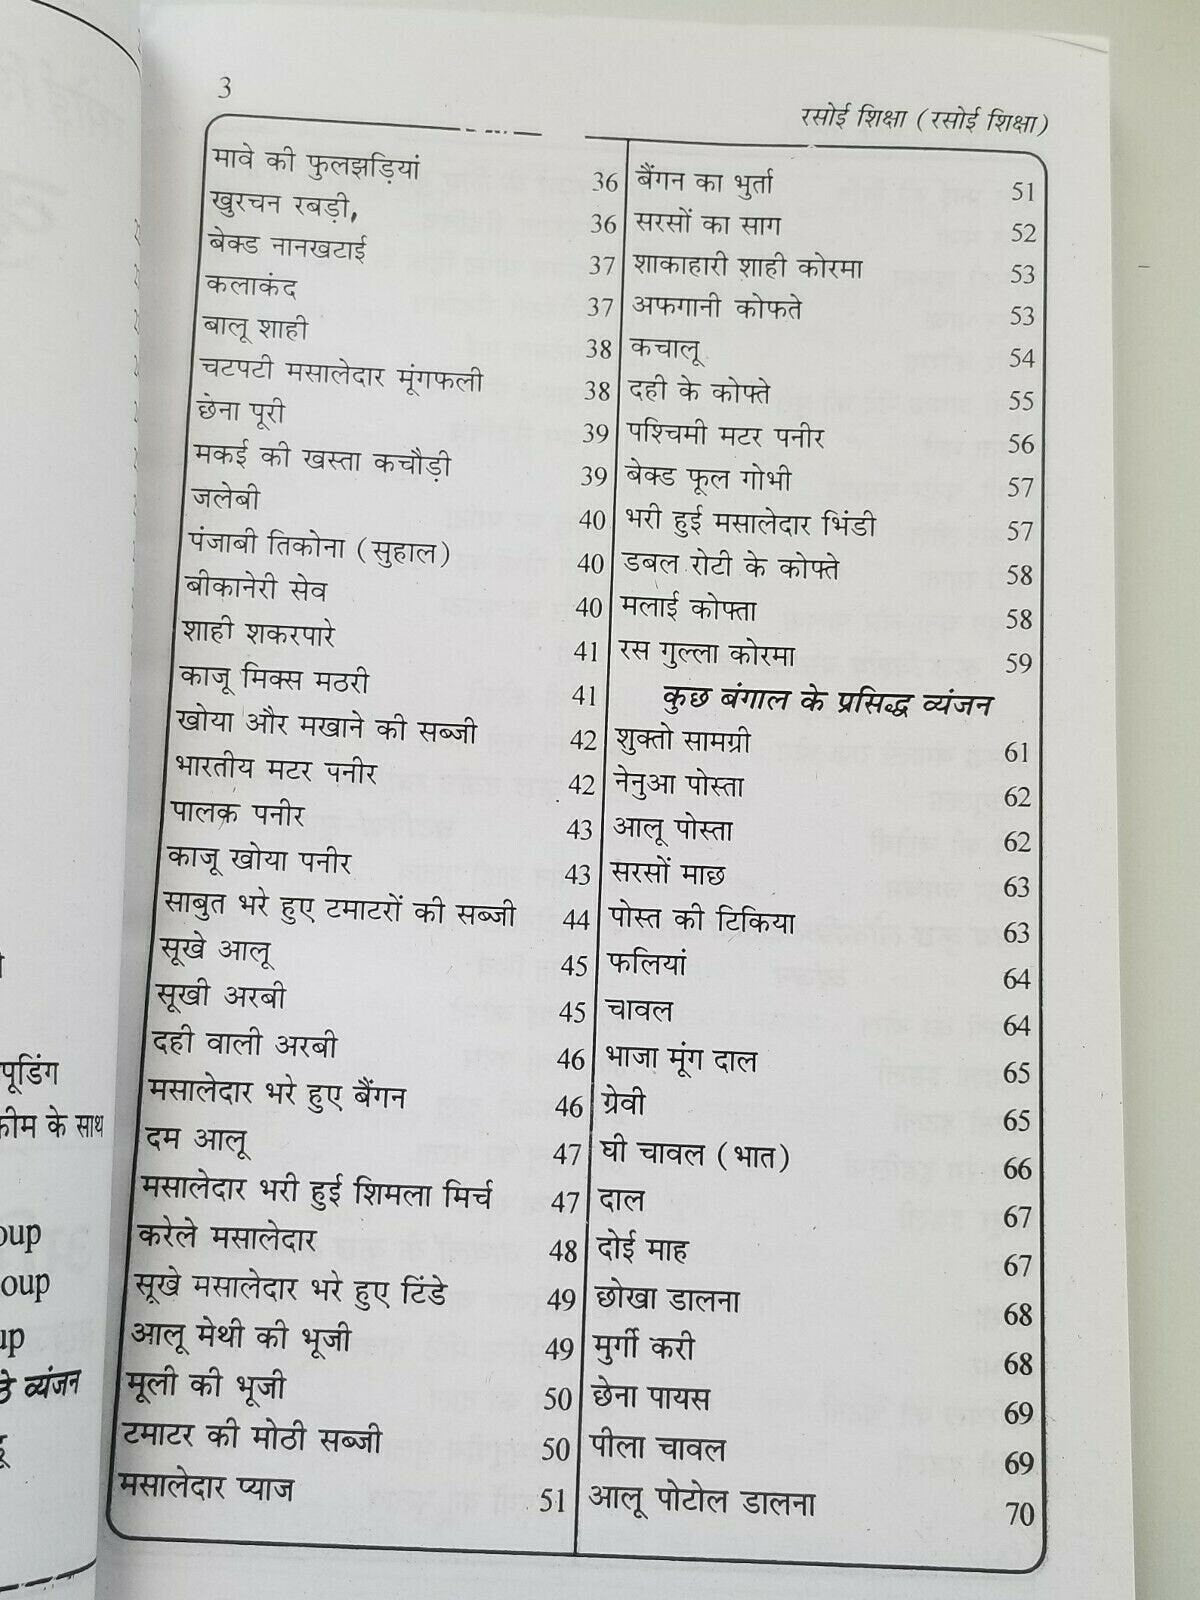 3
रसोई शिक्षा (रसोई शिक्षा)
मावे की फुलझड़ियां 36
खुरचन रबड़ी, 36
बेक्ड नानखटाई 37
कलाकंद 37
बालू शाही 38
चटपटी मसालेदार मूंगफली 38
छेना पूरी 39
मकई की खस्ता कचौड़ी 39
जलेबी 40
पंजाबी तिकोना (सुहाल) 40
बीकानेरी सेव 40
शाही शकरपारे 41
काजू मिक्स मठरी 41
खोया और मखाने की सब्जी 42
भारतीय मटर पनीर 42
पालक पनीर 43
काजू खोया पनीर 43
साबुत भरे हुए टमाटरों की सब्जी 44
सूखे आलू 45
सूखी अरबी 45
दही वाली अरबी 46
मसालेदार भरे हुए बैंगन 46
दम आलू 47
मसालेदार भरी हुई शिमला मिर्च 47
करेले मसालेदार 48
सूखे मसालेदार भरे हुए टिंडे 49
आलू मेथी की भूजी 49
मूली की भूजी 50
टमाटर की मोठी सब्जी 50
मसालेदार प्याज 51
बैंगन का भुर्ता 51
सरसों का साग 52
शाकाहारी शाही कोरमा 53
अफगानी कोफते 53
कचालू 54
दही के कोफ्ते 55
पश्चिमी मटर पनीर 56
बेक्ड फूल गोभी 57
भरी हुई मसालेदार भिंडी 57
डबल रोटी के कोफ्ते 58
मलाई कोफ्ता 58
रस गुल्ला कोरमा 59
कुछ बंगाल के प्रसिद्ध व्यंजन
शुक्तो सामग्री 61
नेनुआ पोस्ता 62
आलू पोस्ता 62
सरसों माछ 63
पोस्त की टिकिया 63
फलियां 64
चावल 64
भाजा मूंग दाल 65
ग्रेवी 65
घी चावल (भात) 66
दाल 67
दोई माह 67
छोखा डालना 68
मुर्गी करी 68
छेना पायस 69
पीला चावल 69
आलू पोटोल डालना 70
पूडिंग
के साथ
oup
oup
up
व्यंजन